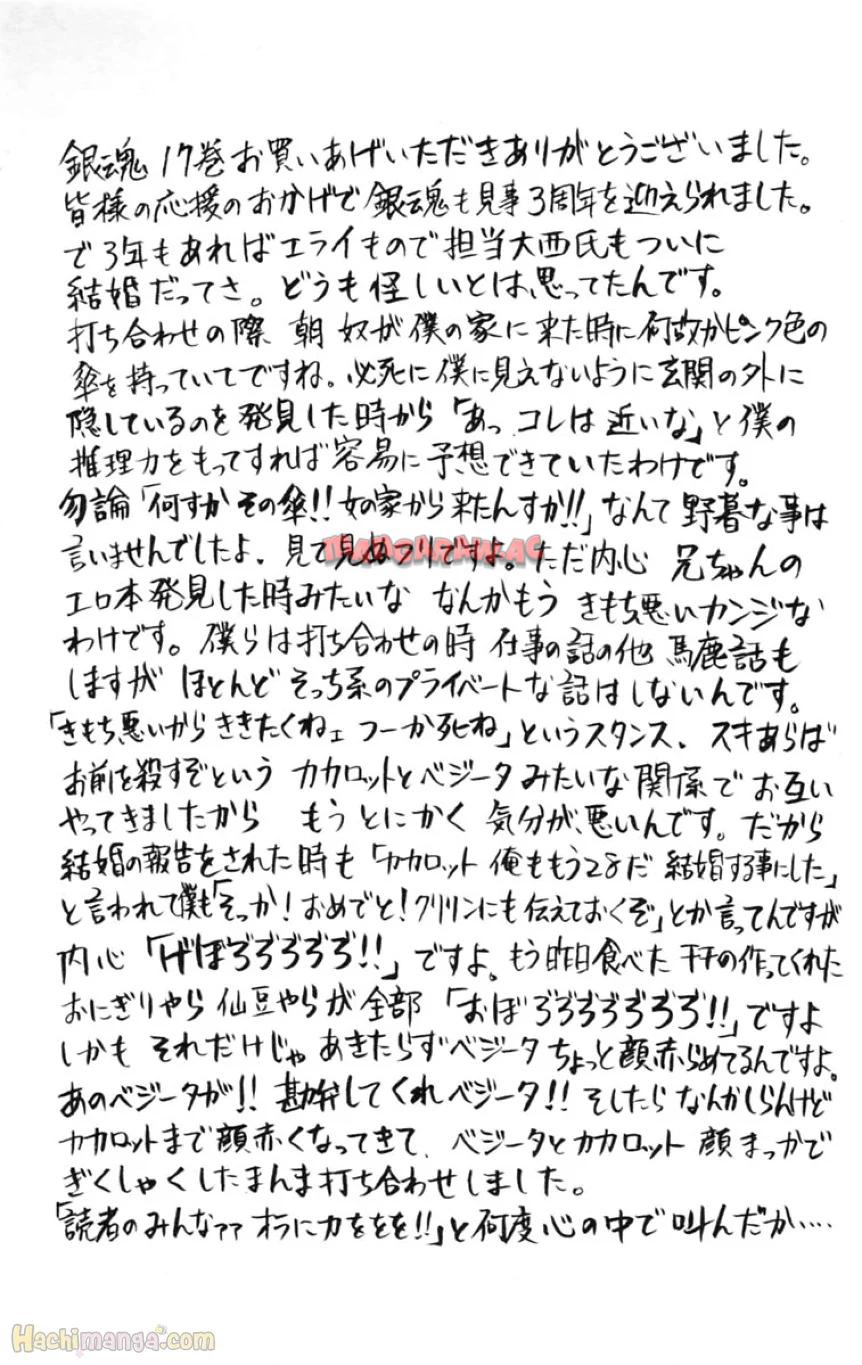 銀魂 17巻お買いあげいただきありがとうございました。
皆様の応援のおかげで銀魂も見事3周年を迎えられました。
で3年もあればエライもので担当大西氏もついに
結婚だってさ。どうも怪しいとは思ってたんです。
打ち合わせの際 朝 奴が僕の家に来た時に何故かピンク色の
傘を持っていてですね。必死に僕に見えないように玄関の外に
隠しているのを発見した時から「あっ コレは近いな」と僕の
推理力をもってすれば容易に予想できていたわけです。
勿論「何すかその傘!!女の家から来たんすか!!」なんて野暮な事は
言いませんでしたよ。見て見ぬフリですよ。ただ内心 兄ちゃんの
MANGARAW.AC
エロ本発見した時みたいな なんかもう きもち悪いカンジな
わけです。僕らは打ち合わせの時 仕事の話の他 馬鹿話も
しますが ほとんど そっち系のプライベートな話はしないんです。
「きもち悪いからききたくねェ つーか死ね」というスタンス、スキあらば
お前を殺すぞという カカロットとベジータみたいな関係でお互い
やってきましたから もうとにかく 気分が悪いんです。だから
結婚の報告をされた時も「カカロット 俺ももう28だ 結婚する事にした」
と言われて僕も「そっか!おめでと!クリリンにも伝えておくぞ」とか言ってんですが
内心「げぼろろろろろ!!」ですよ。もう昨日食べた チチの作ってくれた
おにぎりやら 仙豆やらが全部「おぼろろろろろろろ!!」ですよ
しかも それだけじゃ あきたらずベジータちょっと顔赤らめてるんですよ。
あのベジータが!! 勘弁してくれベジータ!! そしたら なんかしらんけど
カカロットまで顔赤くなってきて、ベジータとカカロット 顔まっかで
ぎくしゃくしたまんま打ち合わせしました。
「読者のみんなァァ オラに力ををを!!」と何度心の中で叫んだか……
Hachimanga.com